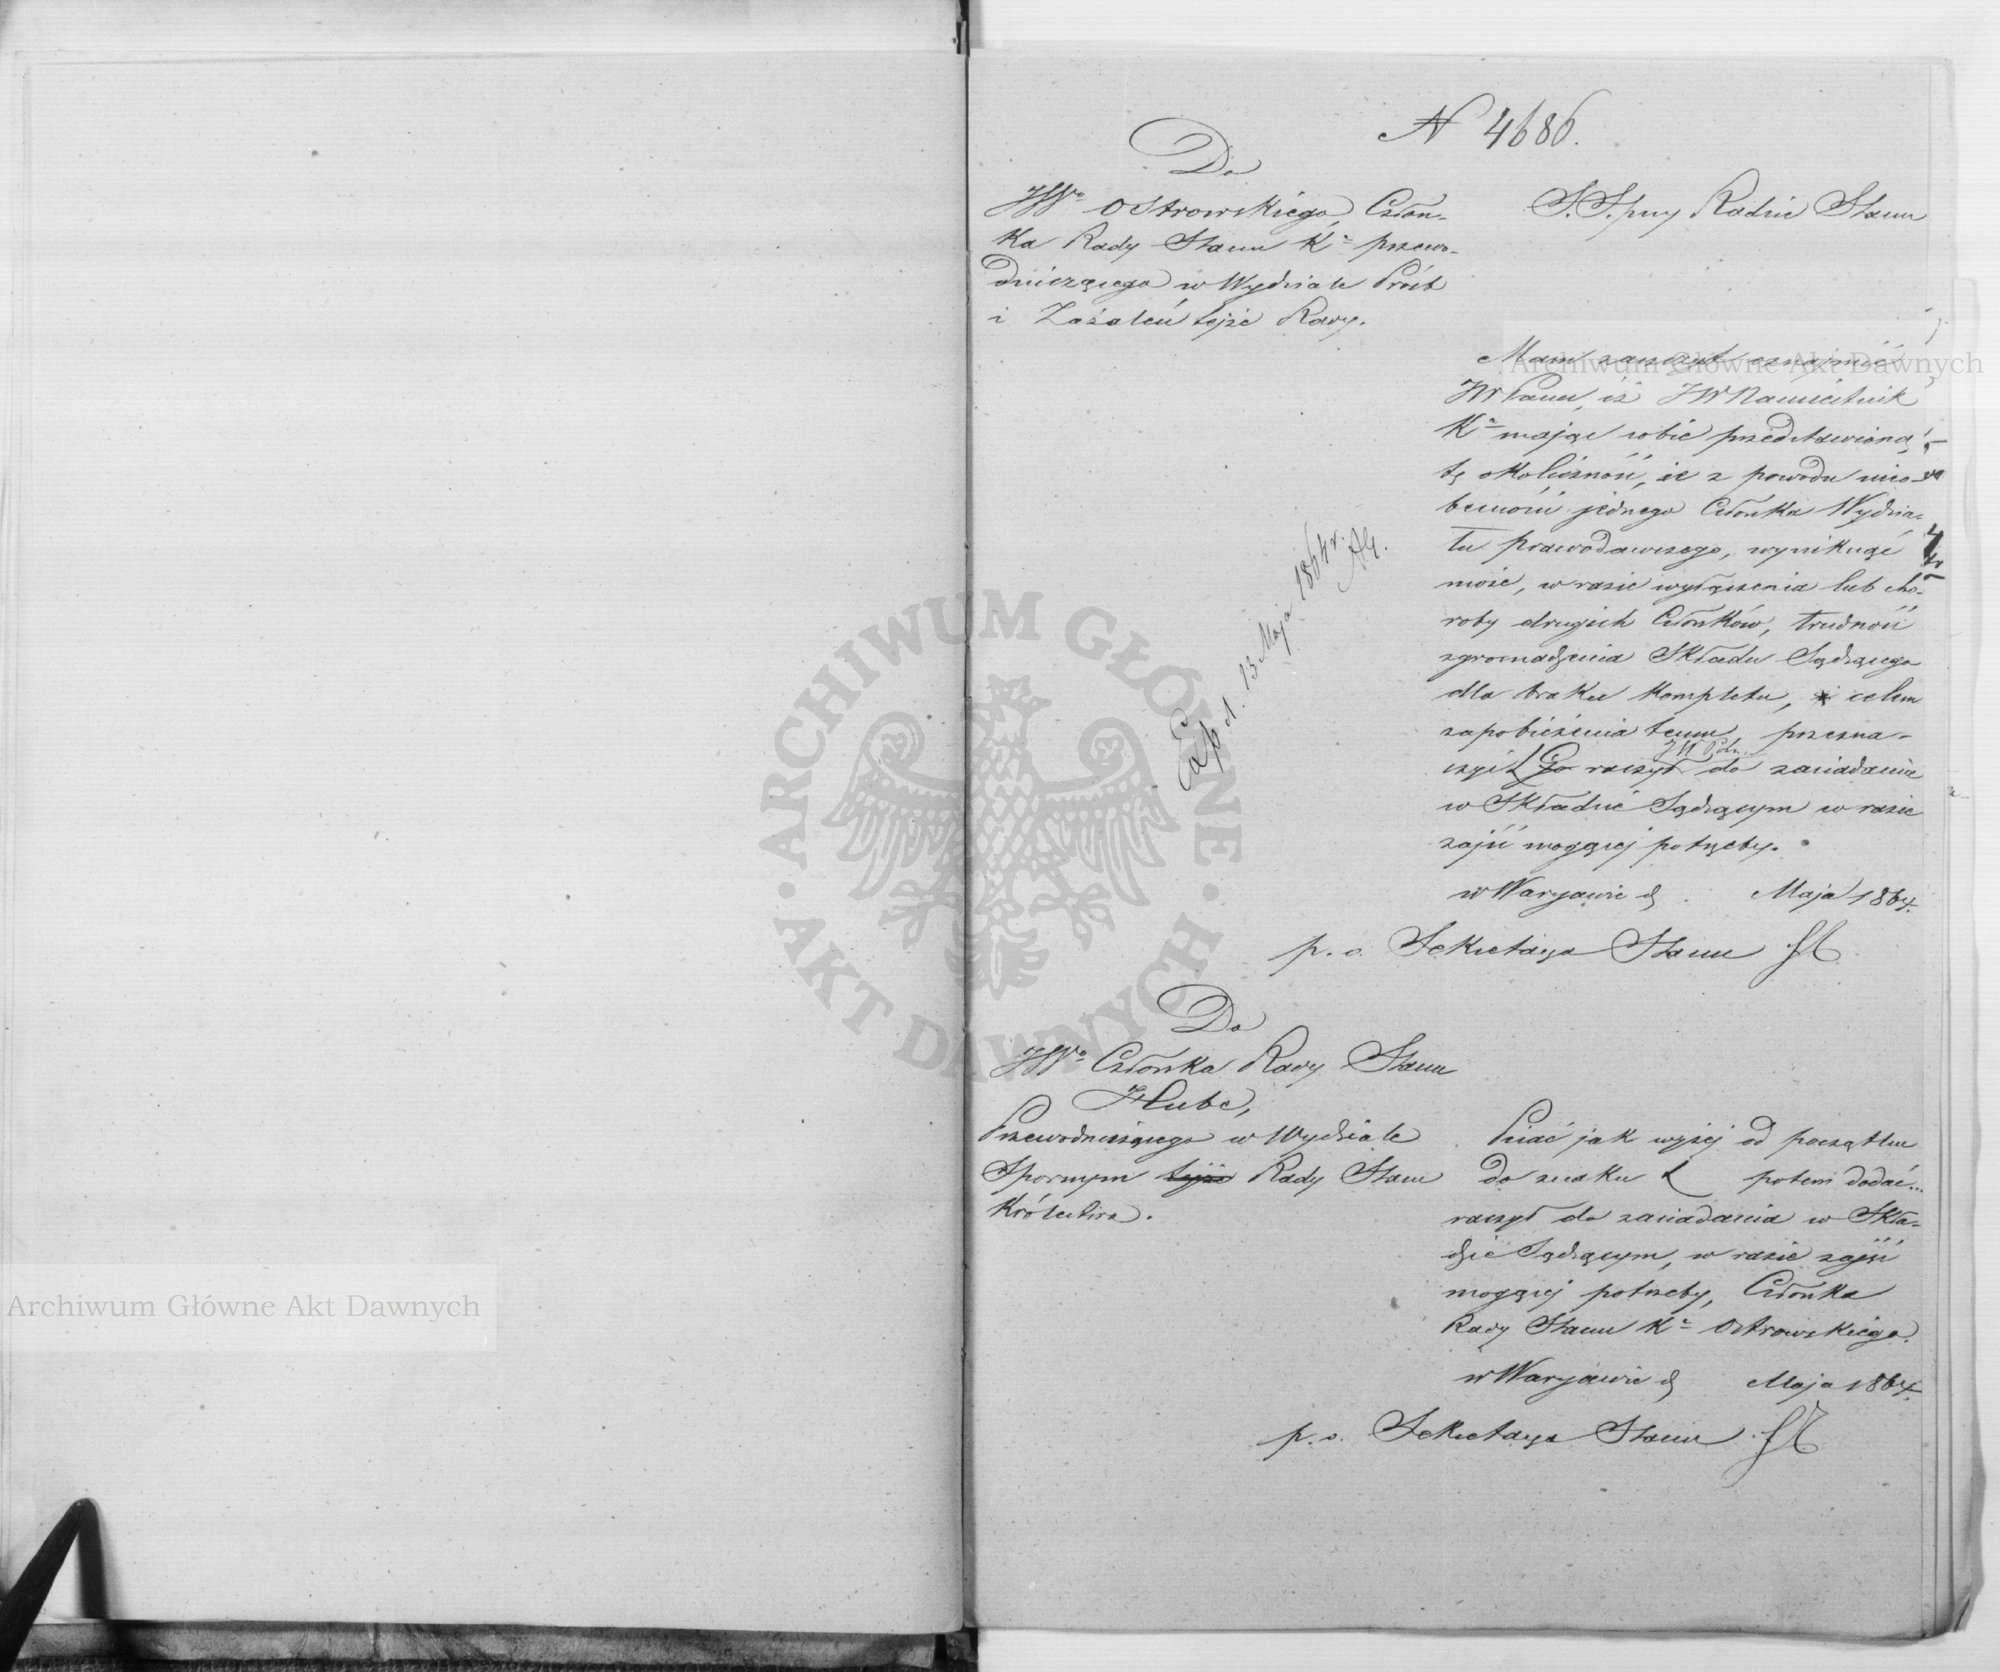 N 4686.
Do
JWo Ostrowskiego, Człon-
ka Rady Stanu Ka przewo-
dniczącego w Wydziale Próśb
i Zażaleń tejże Rady.
S.S. przy Radzie Stanu
Mam zaszczyt oznajmić
JW Panu, iż JW Namiestnik
Ka mając sobie przedstawioną
tę okoliczność, że z powodu nieo-
becności jednego Członka Wydzia-
łu prawodawczego, wynikuąć
może, w razie wyłączenia lub cho-
roby drugich Członków, trudność
zgromadzenia Składu Sądzącego
dla braku kompletu, i celem
zapobieżenia temu, przezna-
JW Pana
czyć Go raczył do zasiadania
w Składzie Sądzącym w razie
zajść mogącej potrzeby.
w Warszawie d. Maja 1864.
p. o. Sekretarza Stanu
Exp d. 13 Maja 1864 r.
Do
JWo Członka Rady Stanu
Hube,
Przewodniczącego w Wydziale
Spornym tejże Rady Stanu
Królestwa.
Pisać jak wyżej od początku
do znaku L potem dodać...
raczył do zasiadania w Skła-
dzie Sądzącym, w razie zajść
mogącej potrzeby, Członka
Rady Stanu Ka Ostrowskiego.
w Warszawie d. Maja 1864.
p. o. Sekretarza Stanu
Archiwum Główne Akt Dawnych
Archiwum Główne Akt Dawnych
ARCHIWUM GŁÓWNE · AKT DAWNYCH ·